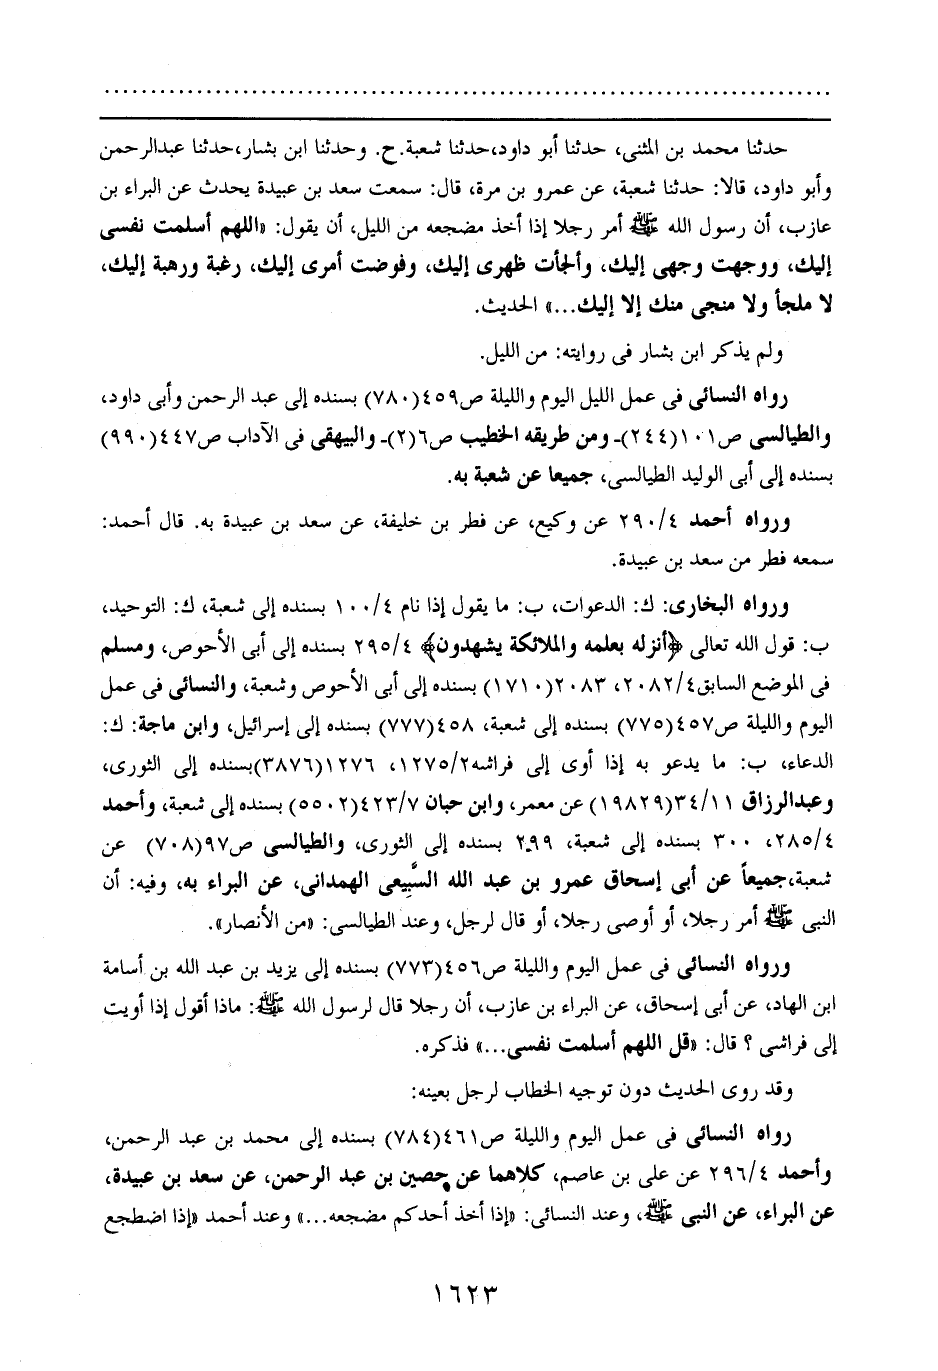 حدثنا محمد بن المثنى، حدثنا أبو داود،حدثنا شعبة.ح. وحدثنا ابن بشار،حدثنا عبدالرحمن
وأبو داود، قالا: حدثنا شعبة، عن عمرو بن مرة، قال: سمعت سعد بن عبيدة يحدث عن البراء بن
عازب، أن رسول الله ﷺ أمر رجلا إذا أخذ مضجعه من الليل، أن يقول: «اللهم أسلمت نفسى
إليك، ووجهت وجهى إليك، وألجأت ظهرى إليك، وفوضت أمرى إليك، رغبة ورهبة إليك،
لا ملجأ ولا منجى منك إلا إليك...» الحديث.
ولم يذكر ابن بشار فى روايته: من الليل.
رواه النسائى فى عمل الليل اليوم والليلة ص٤٥٩(٧٨٠) بسنده إلى عبد الرحمن وأبى داود،
والطيالسى ص١٠١(٢٤٤)ـ ومن طريقه الخطيب ص٦(٢)ـ والبيهقى فى الآداب ص٤٤٧(٩٩٠)
بسنده إلى أبى الوليد الطيالسى، جميعا عن شعبة به.
ورواه أحمد ٢٩٠/٤ عن وكيع، عن فطر بن خليفة، عن سعد بن عبيدة به. قال أحمد:
سمعه فطر من سعد بن عبيدة.
ورواه البخارى: ك: الدعوات، ب: ما يقول إذا نام ١٠٠/٤ بسنده إلى شعبة، ك: التوحيد،
ب: قول الله تعالى ﴿أنزله بعلمه والملائكة يشهدون﴾ ٢٩٥/٤ بسنده إلى أبى الأحوص، ومسلم
فى الموضع السابق٢٠٨٢/٤، ٢٠٨٣(١٧١٠) بسنده إلى أبى الأحوص وشعبة، والنسائى فى عمل
اليوم والليلة ص٤٥٧(٧٧٥) بسنده إلى شعبة، ٤٥٨(٧٧٧) بسنده إلى إسرائيل، وابن ماجة: ك:
الدعاء، ب: ما يدعو به إذا أوى إلى فراشه١٢٧٥/٢، ١٢٧٦(٣٨٧٦)بسنده إلى الثورى،
وعبدالرزاق ٣٤/١١(١٩٨٢٩) عن معمر، وابن حبان ٤٢٣/٧(٥٥٠٢) بسنده إلى شعبة، وأحمد
٢٨٥/٤، ٣٠٠ بسنده إلى شعبة، ٢٩٩ بسنده إلى الثورى، والطيالسى ص٩٧(٧٠٨) عن
شعبة،جميعاً عن أبى إسحاق عمرو بن عبد الله السَّبِيعى الهمدانى، عن البراء به، وفيه: أن
النبى ﷺ أمر رجلا، أو أوصى رجلا، أو قال لرجل، وعند الطيالسى: «من الأنصار».
ورواه النسائى فى عمل اليوم والليلة ص٤٥٦(٧٧٣) بسنده إلى يزيد بن عبد الله بن أسامة
ابن الهاد، عن أبى إسحاق، عن البراء بن عازب، أن رجلا قال لرسول الله ﷺ: ماذا أقول إذا أويت
إلى فراشى ؟ قال: «قل اللهم أسلمت نفسى...» فذكره.
وقد روى الحديث دون توجيه الخطاب لرجل بعينه:
رواه النسائى فى عمل اليوم والليلة ص٤٦١(٧٨٤) بسنده إلى محمد بن عبد الرحمن،
وأحمد ٢٩٦/٤ عن على بن عاصم، كلاهما عن حصين بن عبد الرحمن، عن سعد بن عبيدة،
عن البراء، عن النبى ﷺ، وعند النسائى: «إذا أخذ أحدكم مضجعه...» وعند أحمد «إذا اضطجع
١٦٢٣